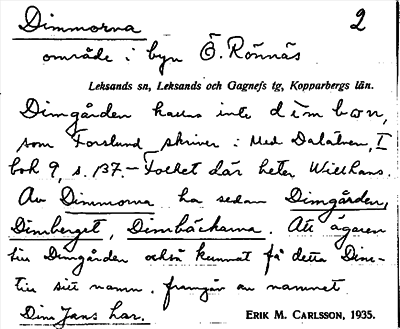 Dimmorna 2
område i byn Ö. Rönnäs
Leksands sn, Leksands och Gagnefs tg, Kopparbergs län.
Dimgården kallas inte dimbon,
som Forslund skriver i Med Dalälven, I
bok 9, s. 137. – Folket där heter Willhans.
Av Dimmorna ha sedan Dimgården,
Dimberget, Dimbäckarna. Att ägaren
till Dimgården också kunnat få detta Dim-
till sitt namn, framgår av namnet
Dim Jans har.
ERIK M. CARLSSON, 1935.